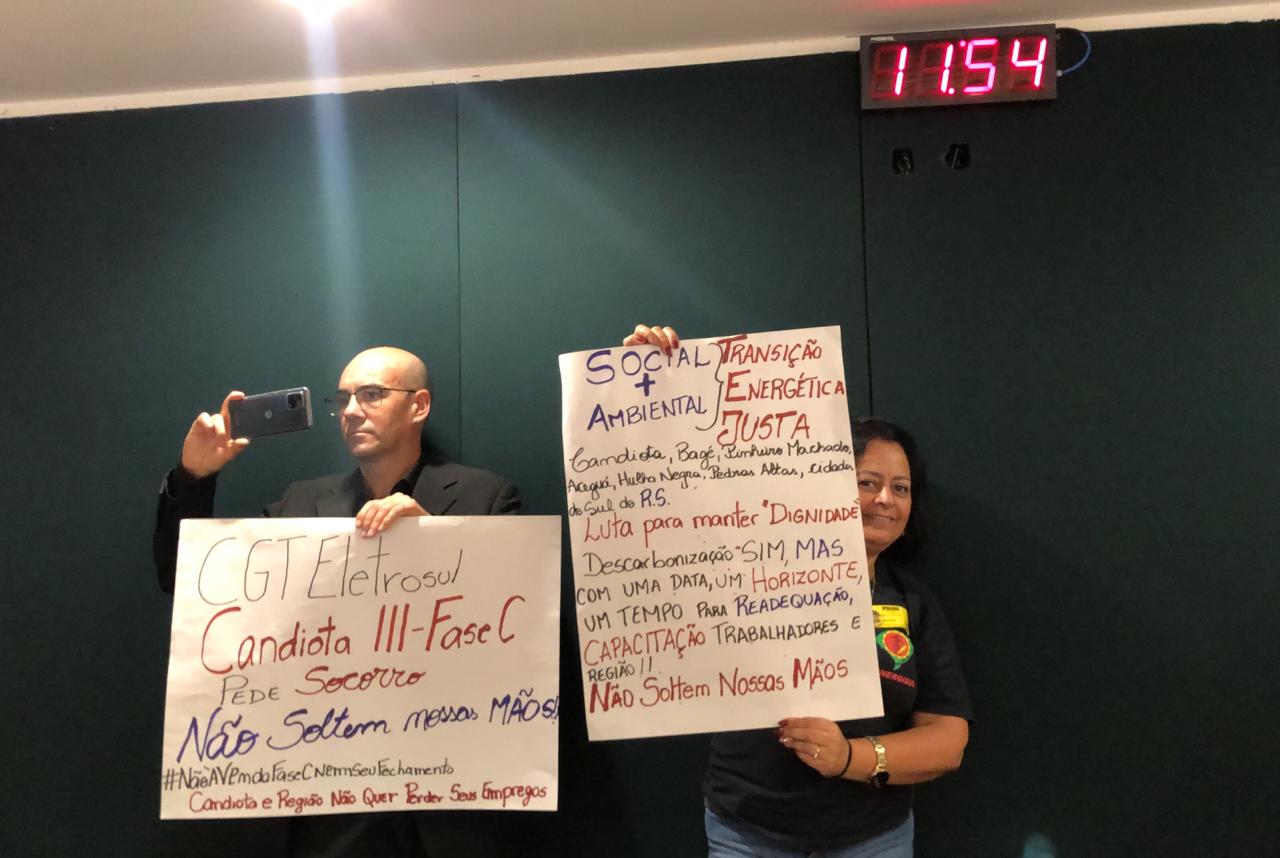 11:54
CGT Eletrosul
Candiota III-Fase C
PEDE Socorro
Não Soltem nossas MÃOS!
#NãoAVEndaFaseCNemSeuFechamento
Candiota e Região Não Quer Perder Seus Empregos
SOCIAL
+
AMBIENTAL
TRANSIÇÃO
ENERGÉTICA
JUSTA
Candiota, Bagé, Pinheiro Machado,
Aceguá, Hulha Negra, Pedras Altas, cidades
do Sul do R.S.
Luta para manter "DIGNIDADE"
Descarbonização SIM, MAS
COM UMA DATA, UM HORIZONTE,
UM TEMPO PARA READEQUAÇÃO,
CAPACITAÇÃO TRABALHADORES E
REGIÃO!!
NÃO SOLTEM NOSSAS MÃOS